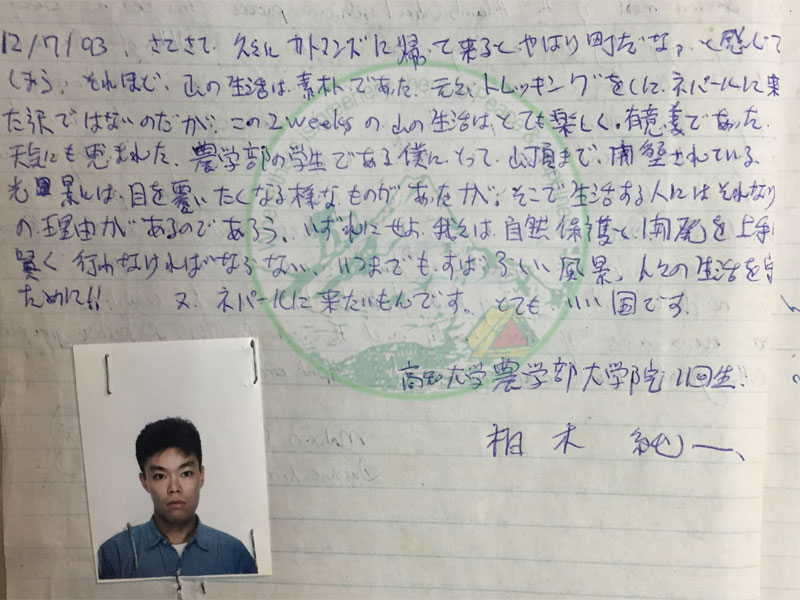 12/7/93. さてさて、久々にカトマンズに帰って来るとやはり町だなぁ、と感じて
しまう。それほど、山の生活は素朴であった。元々、トレッキングをしに、ネパールに来
た訳ではないのだが、この2weeksの山の生活は、とても楽しく、有意義であった。
天気にも恵まれた。農学部の学生である僕にとって、山頂まで、開墾されている
光景には、目を覆いたくなる様なものがあったが、そこで生活する人にはそれなり
の理由があるのであろう、いずれにせよ、我々は自然保護と、開発を上手に
賢く行わなければならない、いつまでも、すばらしい風景、人々の生活を守
ために!! 又、ネパールに来たいもんです。とても、いい国です
高知大学農学部大学院 回生.
柏木 純一、